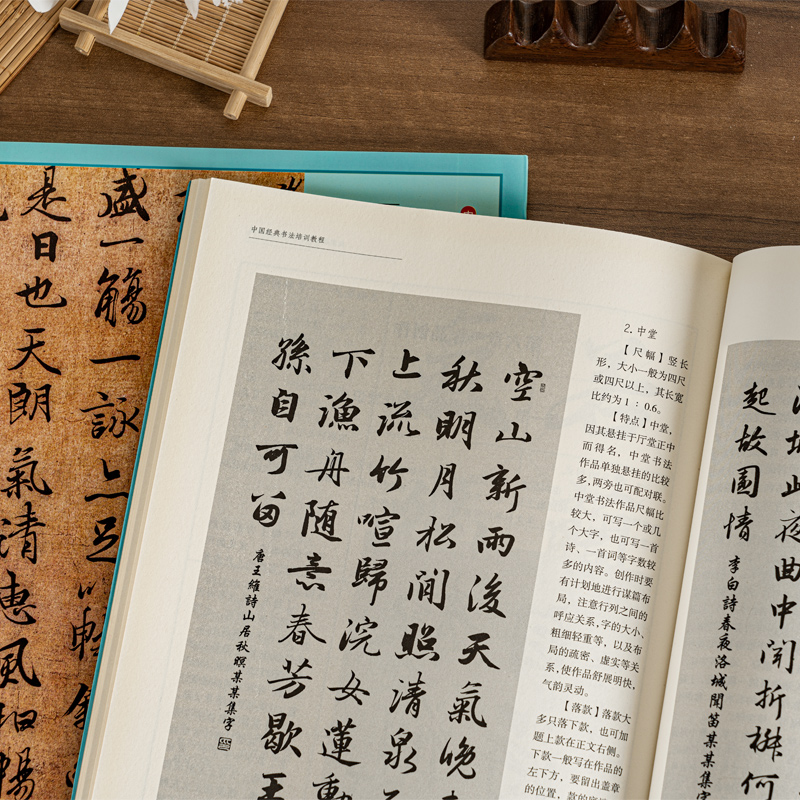 盛一觴一詠亦足以暢
是日也天朗氣清惠風和暢
中国经典书法培训教程
空山新雨後天氣晚
秋明月松間照清泉
上流竹喧歸浣女蓮動
下漁舟隨意春芳歇王
孫自可留
唐王維詩山居秋暝某某集字
2. 中堂
【尺幅】竖长
形，大小一般为四尺
或四尺以上，其长宽
比约为1：0.6。
【特点】中堂，
因其悬挂于厅堂正中
而得名，中堂书法
作品单独悬挂的比较
多，两旁也可配对联。
中堂书法作品尺幅比
较大，可写一个或几
个大字，也可写一首
诗、一首词等字数较
多的内容。创作时要
有计划地进行谋篇布
局，注意行列之间的
呼应关系，字的大小、
粗细轻重等，以及布
局的疏密、虚实等关
系，使作品舒展明快，
气韵灵动。
【落款】落款大
多只落下款，也可加
题上款在正文右侧。
下款一般写在作品的
左下方，要留出盖章
的位置，款的底
城此夜曲中聞折柳何
起故園情
李白詩春夜洛城聞笛某某集字